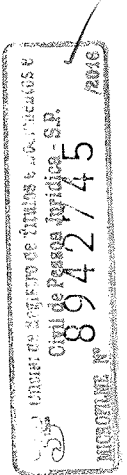 3º Oficial de Registro de Títulos e Documentos e
Civil de Pessoa Jurídica - S.P.
8942745
MICROFILME Nº /2016